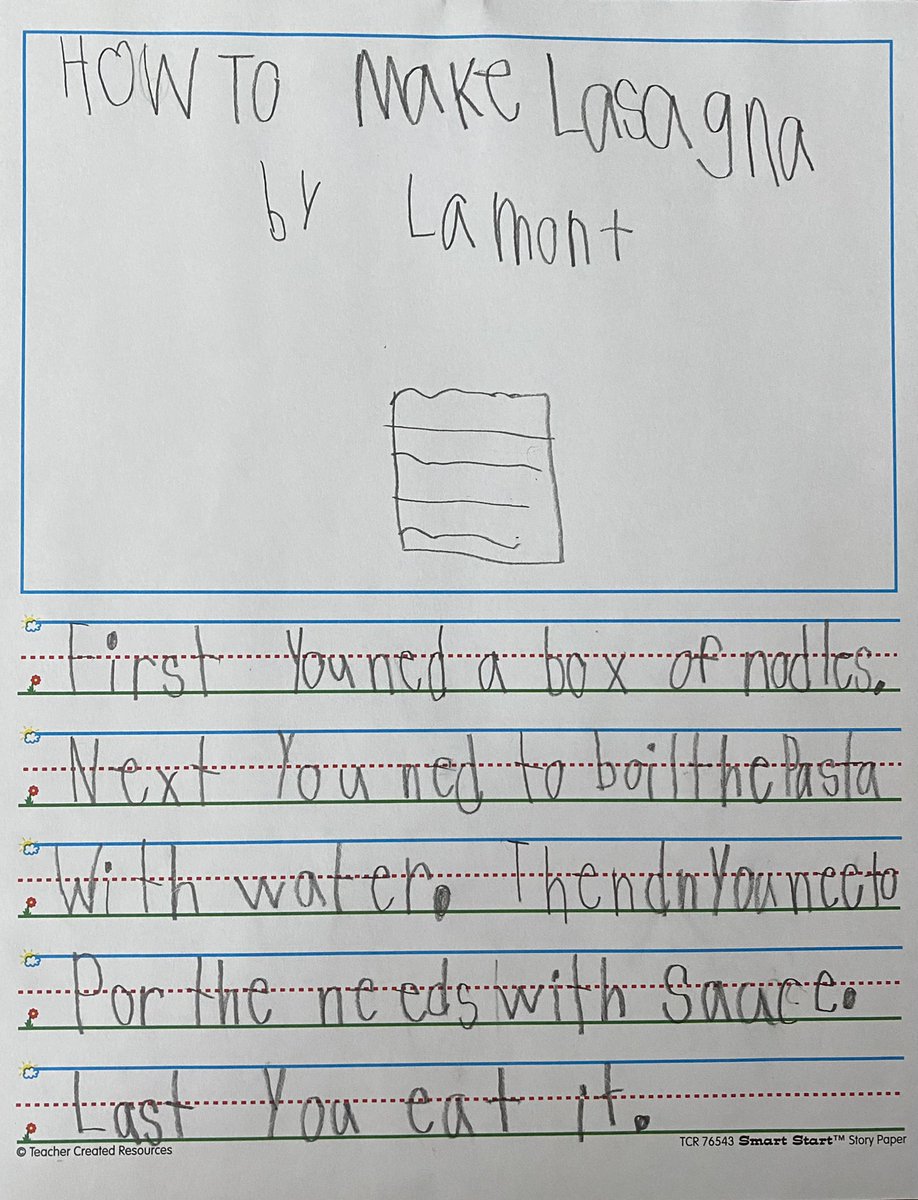 HOW TO Make Lasagna
by Lamont
First You ned a box of nodles.
Next You ned to boil the Pasta
With water. Thendn You neeto
Por the needs with Sauce.
Last You eat it.
© Teacher Created Resources
TCR 76543 Smart Start™ Story Paper